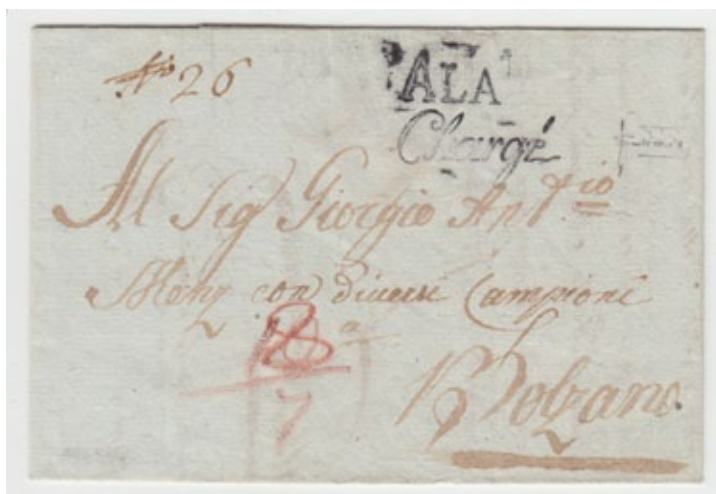 No 26
ALA
Chargé
Al Sig Giorgio Antio
Menz con diverse Campioni
a
Bolzano
7